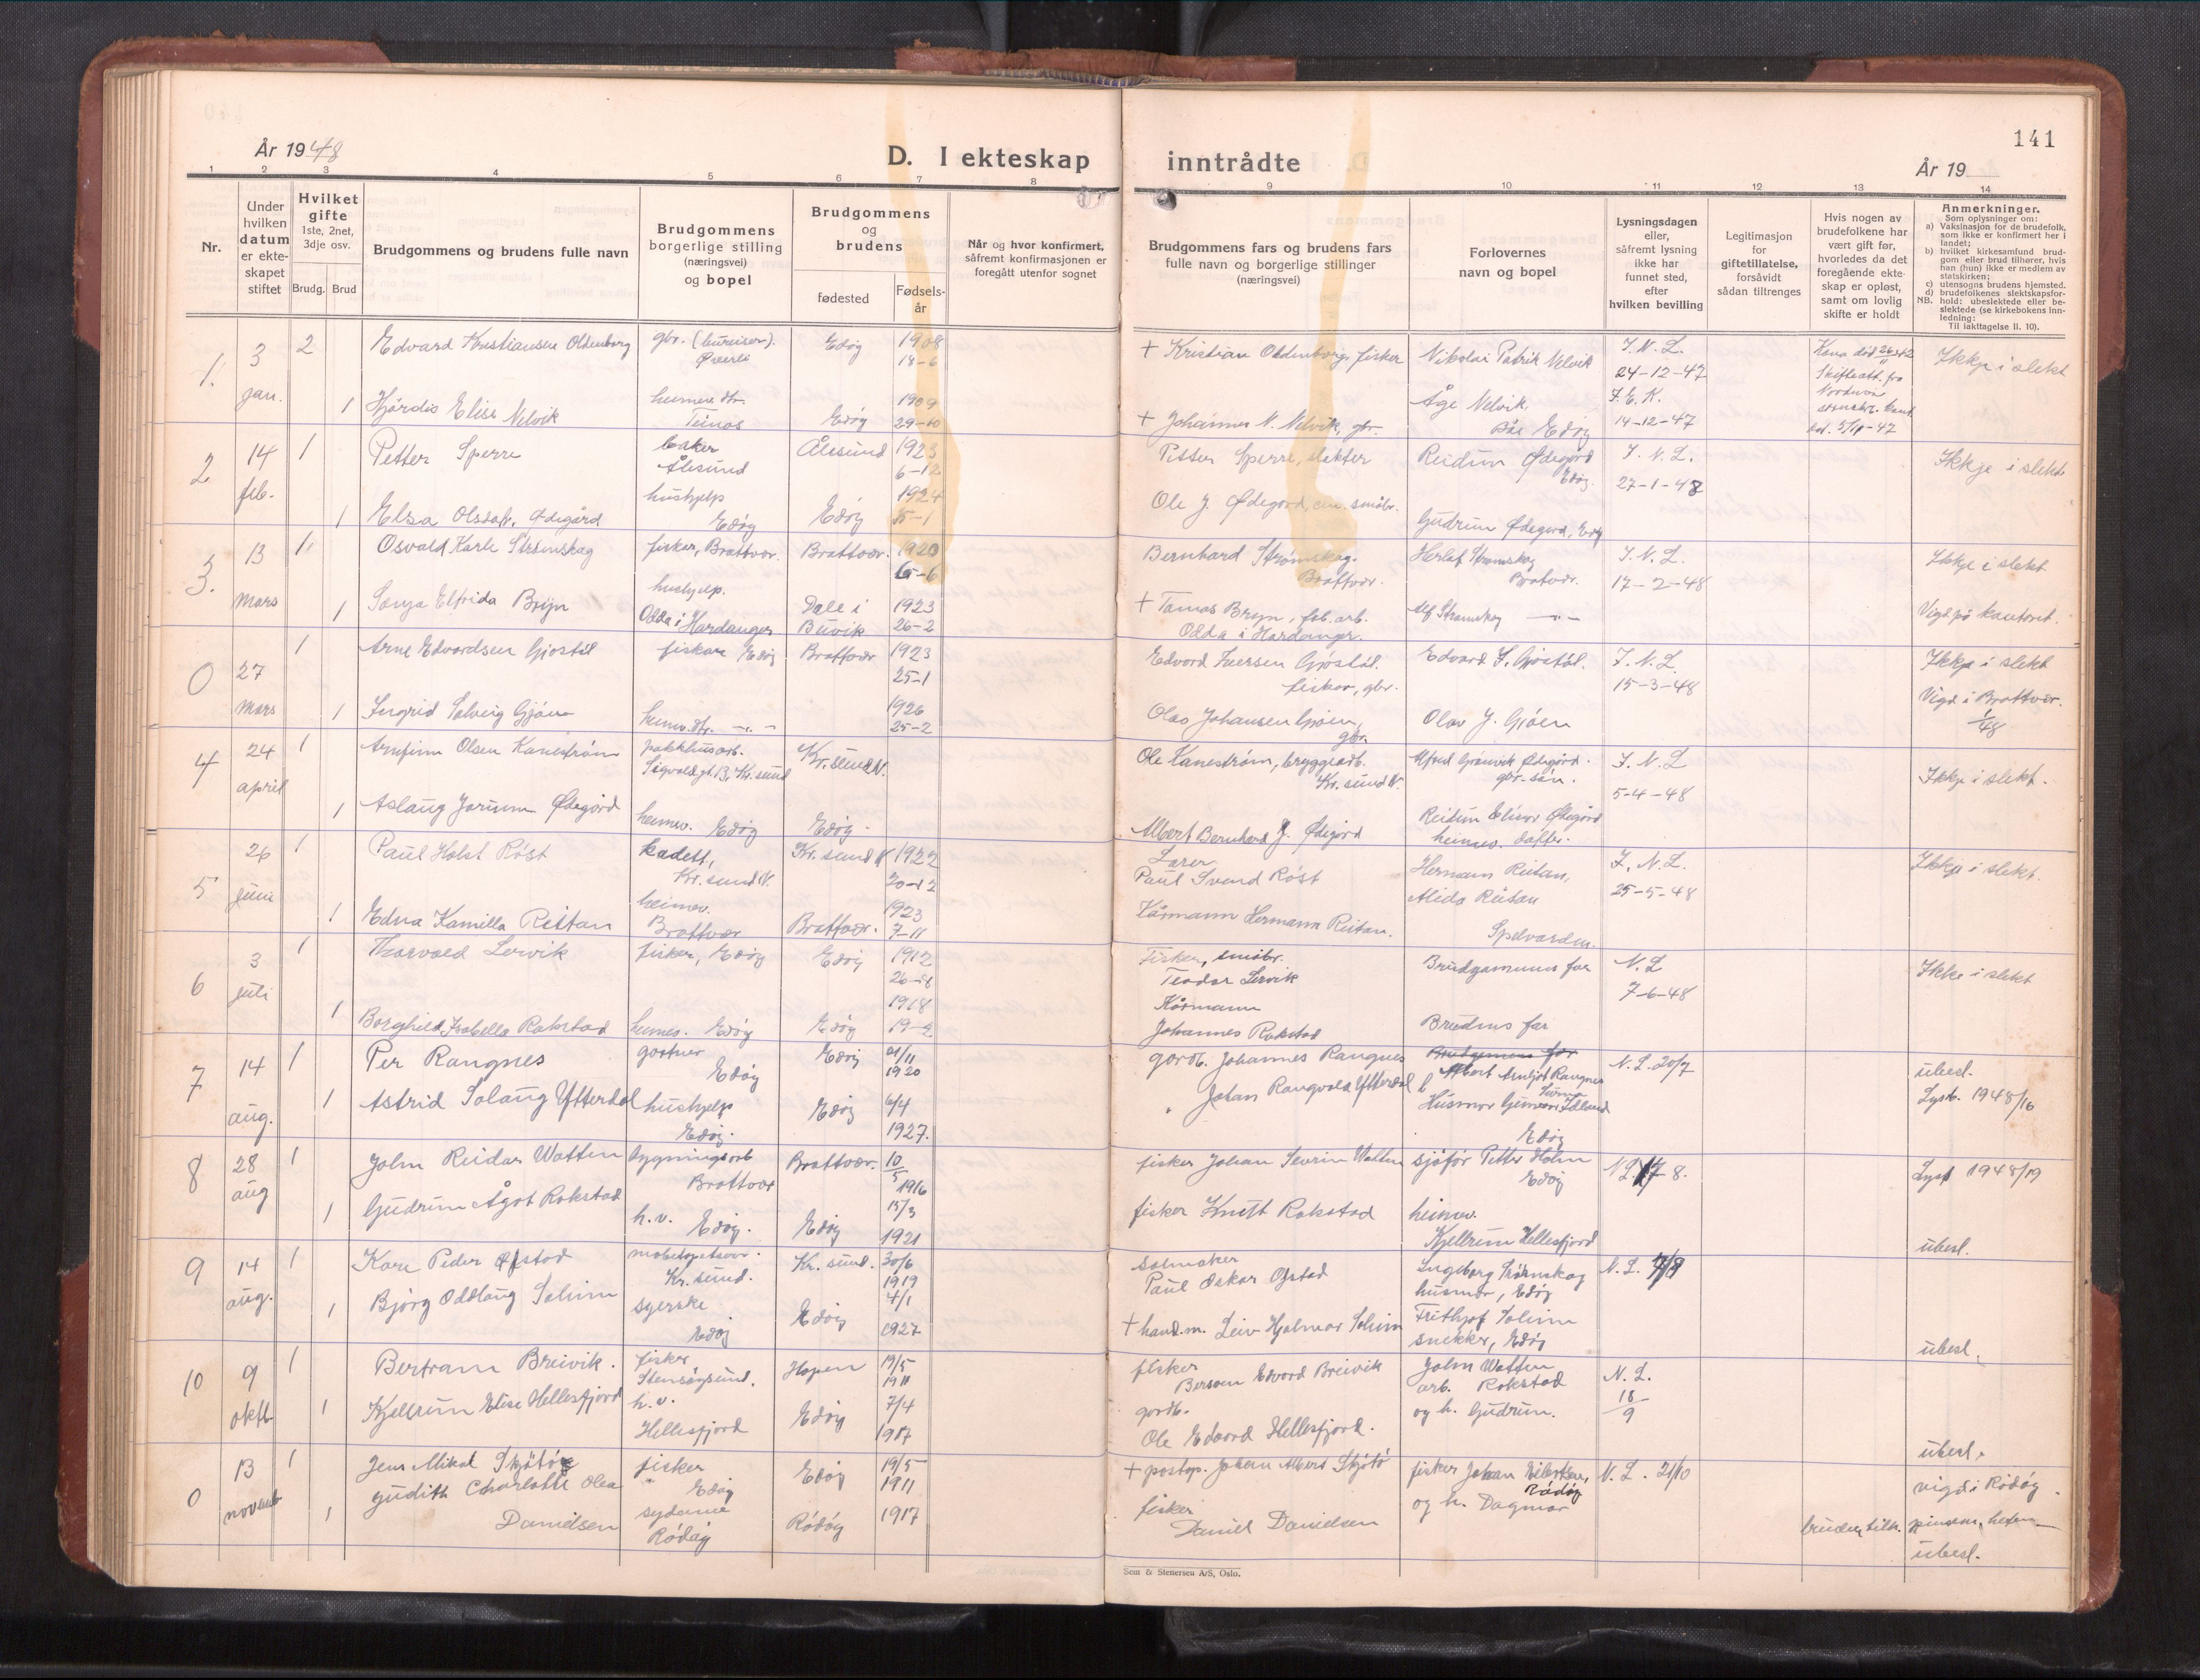 141
År 1948
D. I ekteskap inntrådte
År 19
1 2 3 4 5 6 7 8 9 10 11 12 13 14
Nr.
Under hvilken datum er ekteskapet stiftet
Hvilket gifte 1ste, 2net, 3dje osv.
Brudg. Brud
Brudgommens og brudens fulle navn
Brudgommens borgerlige stilling (næringsvei) og bopel
Brudgommens og brudens
fødested
Fødselsår
Når og hvor konfirmert, såfremt konfirmasjonen er foregått utenfor sognet
Brudgommens fars og brudens fars fulle navn og borgerlige stillinger (næringsvei)
Forlovernes navn og bopel
Lysningsdagen eller, såfremt lysning ikke har funnet sted, efter hvilken bevilling
Legitimasjon for giftetillatelse, forsåvidt sådan tiltrenges
Hvis nogen av brudefolkene har vært gift før, hvorledes da det foregående ekteskap er opløst, samt om lovlig skifte er holdt
Anmerkninger.
Som oplysninger om:
a) Vaksinasjon for de brudefolk, som ikke er konfirmert her i landet;
b) hvilket kirkesamfund brudgom eller brud tilhører, hvis han (hun) ikke er medlem av statskirken;
c) utensogns brudens hjemsted.
d) brudefolkenes slektskapsforhold: ubeslektede eller beslektede (se kirkebokens innledning:
NB. Til iakttagelse II. 10).
1. 3 jan. 2 Edvard Kristiansen Oldenborg gbr. (bureiser). Edøy 1908 18-6 + Kristian Oldenborg, fisker Nikolai Patrik Nelvik I. N. L. 24-12-47 Kona død Skifteatt. fra Nordmør Ikkje i slekt
1 Hjørdis Elise Nelvik heimev. dtr. Edøy 1909 29-10 + Johannes N. Nelvik, gbr Åge Nelvik, Edøy 14-12-47
2 14 feb. 1 Petter Sperre baker Ålesund Ålesund 1923 6-12 Petter Sperre, slakter Reidun Ødegård Edøy. I. N. L. 27-1-48 Ikkje i slekt
1 Elsa Olsdtr. Ødegård hushjelp Edøy Edøy 1924 Ole J. Ødegård, småbr. Gudrun Ødegård, Edøy
3. 13 mars 1 Osvald Karle Strømskag fisker, Brattvær. Brattvær. 1920 Bernhard Strømskag. Brattvær. Herlaf Strømskag Brattvær. I. N. L. 17-2-48 Ikkje i slekt
1 Sonja Elfrida Bryn hushjelp. Odda i Hardanger Dale i Buvik 1923 26-2 + Tomas Bryn, fab. arb. Odda i Hardanger. Alf Strømskag —"— Vigd på kontoret.
0 27 mars 1 Arne Edvardsen Gjøstøl fiskar Edøy Brattvær 1923 25-1 Edvard Iversen Gjøstøl. fiskar, gbr. Edvard I. Gjøstøl. I. N. L. 15-3-48 Ikkje i slekt
1 Ingrid Solveig Gjøen heimev. dtr. —"— 1926 25-2 Olav Johansen Gjøen, gbr. Olav J. Gjøen Vigd i Brattvær. 1/48
4 24 april 1 Arnfinn Olsen Kanestrøm pakkhusarb. Sigvaldgt. B, Kr.sund Kr.sund N. Ole Kanestrøm, bryggearb. Kr.sund N. Alfred Grønvik Ødegård. gbr.-søn. I. N. L 5-4-48 Ikkje i slekt.
1 Aslaug Jorunn Ødegård heimev. Edøy Edøy. Albert Bernhard J. Ødegård Reidun Elinor Ødegård heimev. dotter.
5 26 juni 1 Paul Holst Røst kadett, Kr.sund N. Kr.sund N 1922 20-12 Paul Svend Røst Hermann Reitan, I. N. L. 25-5-48 Ikkje i slekt.
1 Edna Kamilla Reitan heimev. Brattvær Brattvær. 1923 7-11 Hermann Reitan. Alida Reitan
6 3 juli 1 Thorvald Lervik fisker, Edøy Edøy 1912 Fisker, småbr. Teodor Lervik Brudgommens far N. L 7-6-48 Ikke i slekt
1 Borghild Isabella Rokstad heimev. Edøy Edøy 1918 Johannes Rokstad Brudens far
7 14 aug. 1 Per Rangnes gartner Edøy Edøy 21/11 1920 gårdb. Johannes Rangnes Brudgommens far Albert Rangnes N. L. 20/7 ubesl.
1 Astrid Solaug Ytterdal hushjelp Edøy. Edøy 6/4 1927. " Johan Rangvald Ytterdal Husmor Edøy Lysb. 1948/16
8 28 aug 1 John Reidar Watten bygningsarb Brattvær Brattvær. 10/5 1916 fisker Johan Severin Watten sjåfør Petter Holm Edøy N L 17-8. Lysb 1948/19
1 Gudrun Ågot Rokstad h.v. Edøy. Edøy 15/3 1921 fisker Knutt Rokstad heimev. Kjellrun Hellesfjord ubesl.
9 14 aug. 1 Kåre Peder Ofstad Kr.sund. Kr.sund. 30/6 1919 salmaker Paul Oskar Ofstad Ingeborg Strømskag husmor, Edøy N. L. 7/8
1 Bjørg Oddlaug Solum syerske Edøy Edøy 4/1 1927 + hand.m. Leiv Hjalmar Solum Frithjof Solum snekker, Edøy ubesl.
10 9 oktb. 1 Bertram Breivik. fisker Stensøysund. Hopen 19/5 1911 fisker Edvard Breivik John Watten arb. Rokstad N. L. 18/9
1 Kjellrun Elise Hellesfjord h.v. Hellesfjord Edøy 7/4 1917 gårdb. Ole Edvard Hellesfjord. og h. Gudrun. ubesl.
0 13 novemb 1 Jens Mikal Skjøtøy fisker " Edøy Edøy 19/5 1911 + postop. Johan Albert Skjøtø fisker Johan Eilertsen, Rødøy N. L. 21/10 vigd i Rødøy.
1 Judith Charlotte Olea Danielsen sydame Rødøy Rødøy 1917 fisker Daniel Danielsen og h. Dagmar bruden tilh. pinsem. ubesl.
Sem & Stenersen A/S, Oslo.